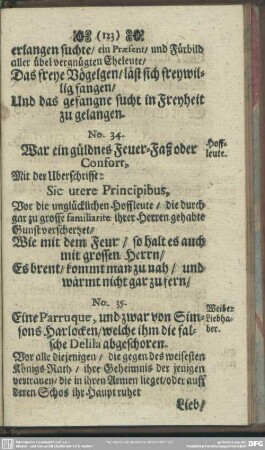 (123)
erlangen suchte/ ein Præsent/ und Fürbild
aller übel vergnügten Eheleute/
Das freye Vögelgen/ läst sich freywil-
lig fangen/
Und das gefangne sucht in Freyheit
zu gelangen.
No. 34.
War ein güldnes Feuer-Faß oder
Confort,
Hoff-
leute.
Mit der Uberschrifft:
Sic utere Principibus,
Vor die unglücklichen Hoffleute / die durch
gar zu grosse familiarité ihrer Herren gehabte
Gunst verschertzet/
Wie mit dem Feur / so halt es auch
mit grossen Herrn/
Es brent/ kommt man zu nah / und
wärmt nicht gar zu fern/
No. 35.
Eine Parruque, und zwar von Sim-
sons Harlocken/ welche ihm die fal-
sche Delila abgeschoren.
Weiber
Liebha-
ber.
Vor alle diejenigen / die gegen des weisesten
Königs Rath / ihre Geheimnis der jenigen
vertrauen/ die in ihren Armen lieget/ oder auff
deren Schos ihr Haupt ruhet
Lieb/